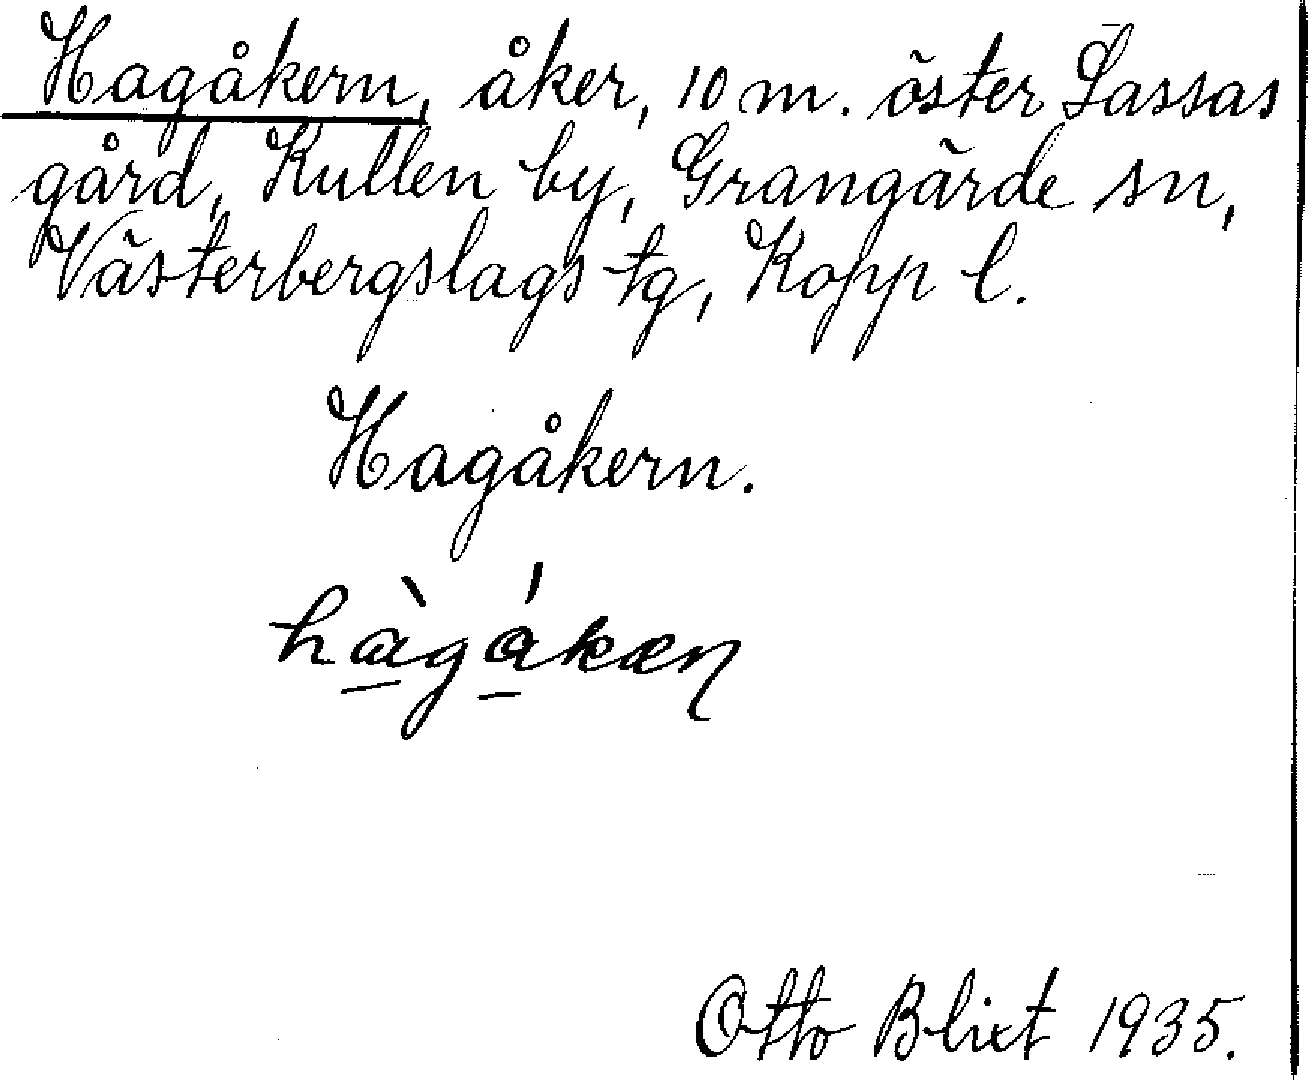 Hagåkern, åker, 10 m. öster Lassas
gård, Kullen by, Grangärde sn,
Västerbergslags tg, Kopp l.
Hagåkern.
hàgákæɳ
Otto Blixt 1935.